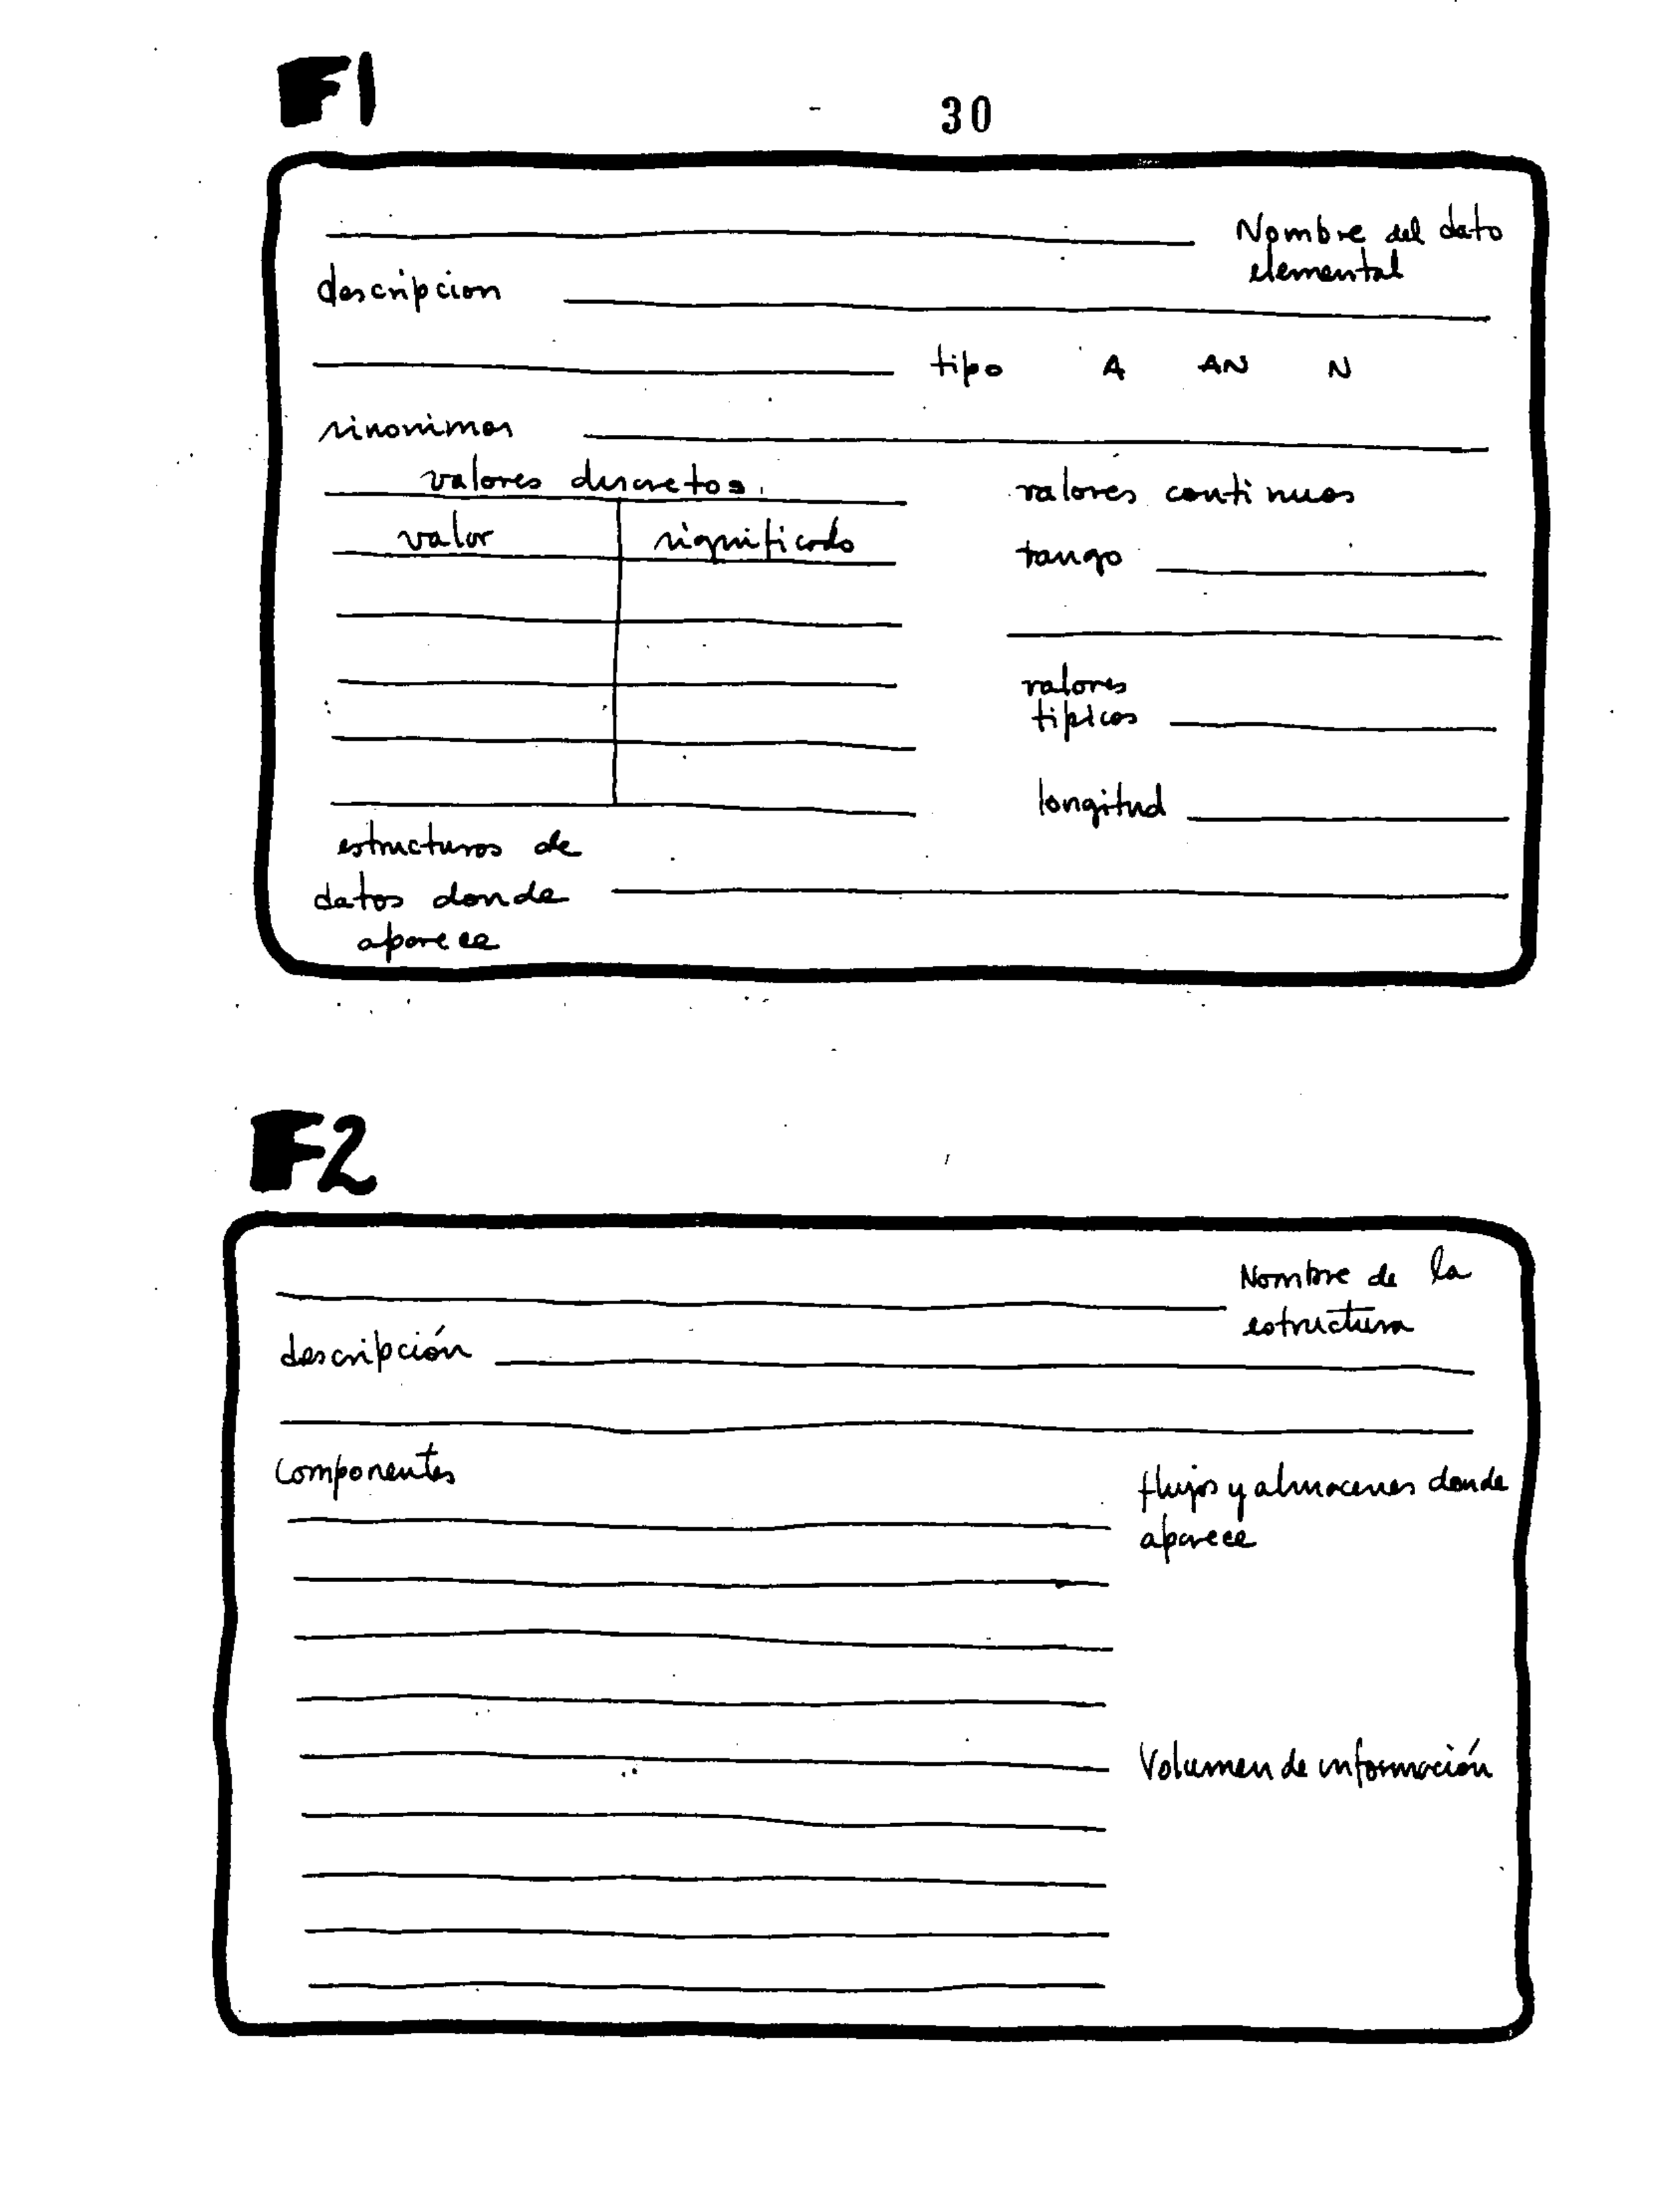 F1
30
Nombre del dato
elemental
descripcion
tipo A AN N
sinonimos
valores discretos.
valor significado
valores continuos
rango
valores
tipicos
longitud
estructuras de
datos donde
aparece
F2
Nombre de la
estructura
descripción
Componentes
flujos y almacenes donde
aparece
Volumen de información